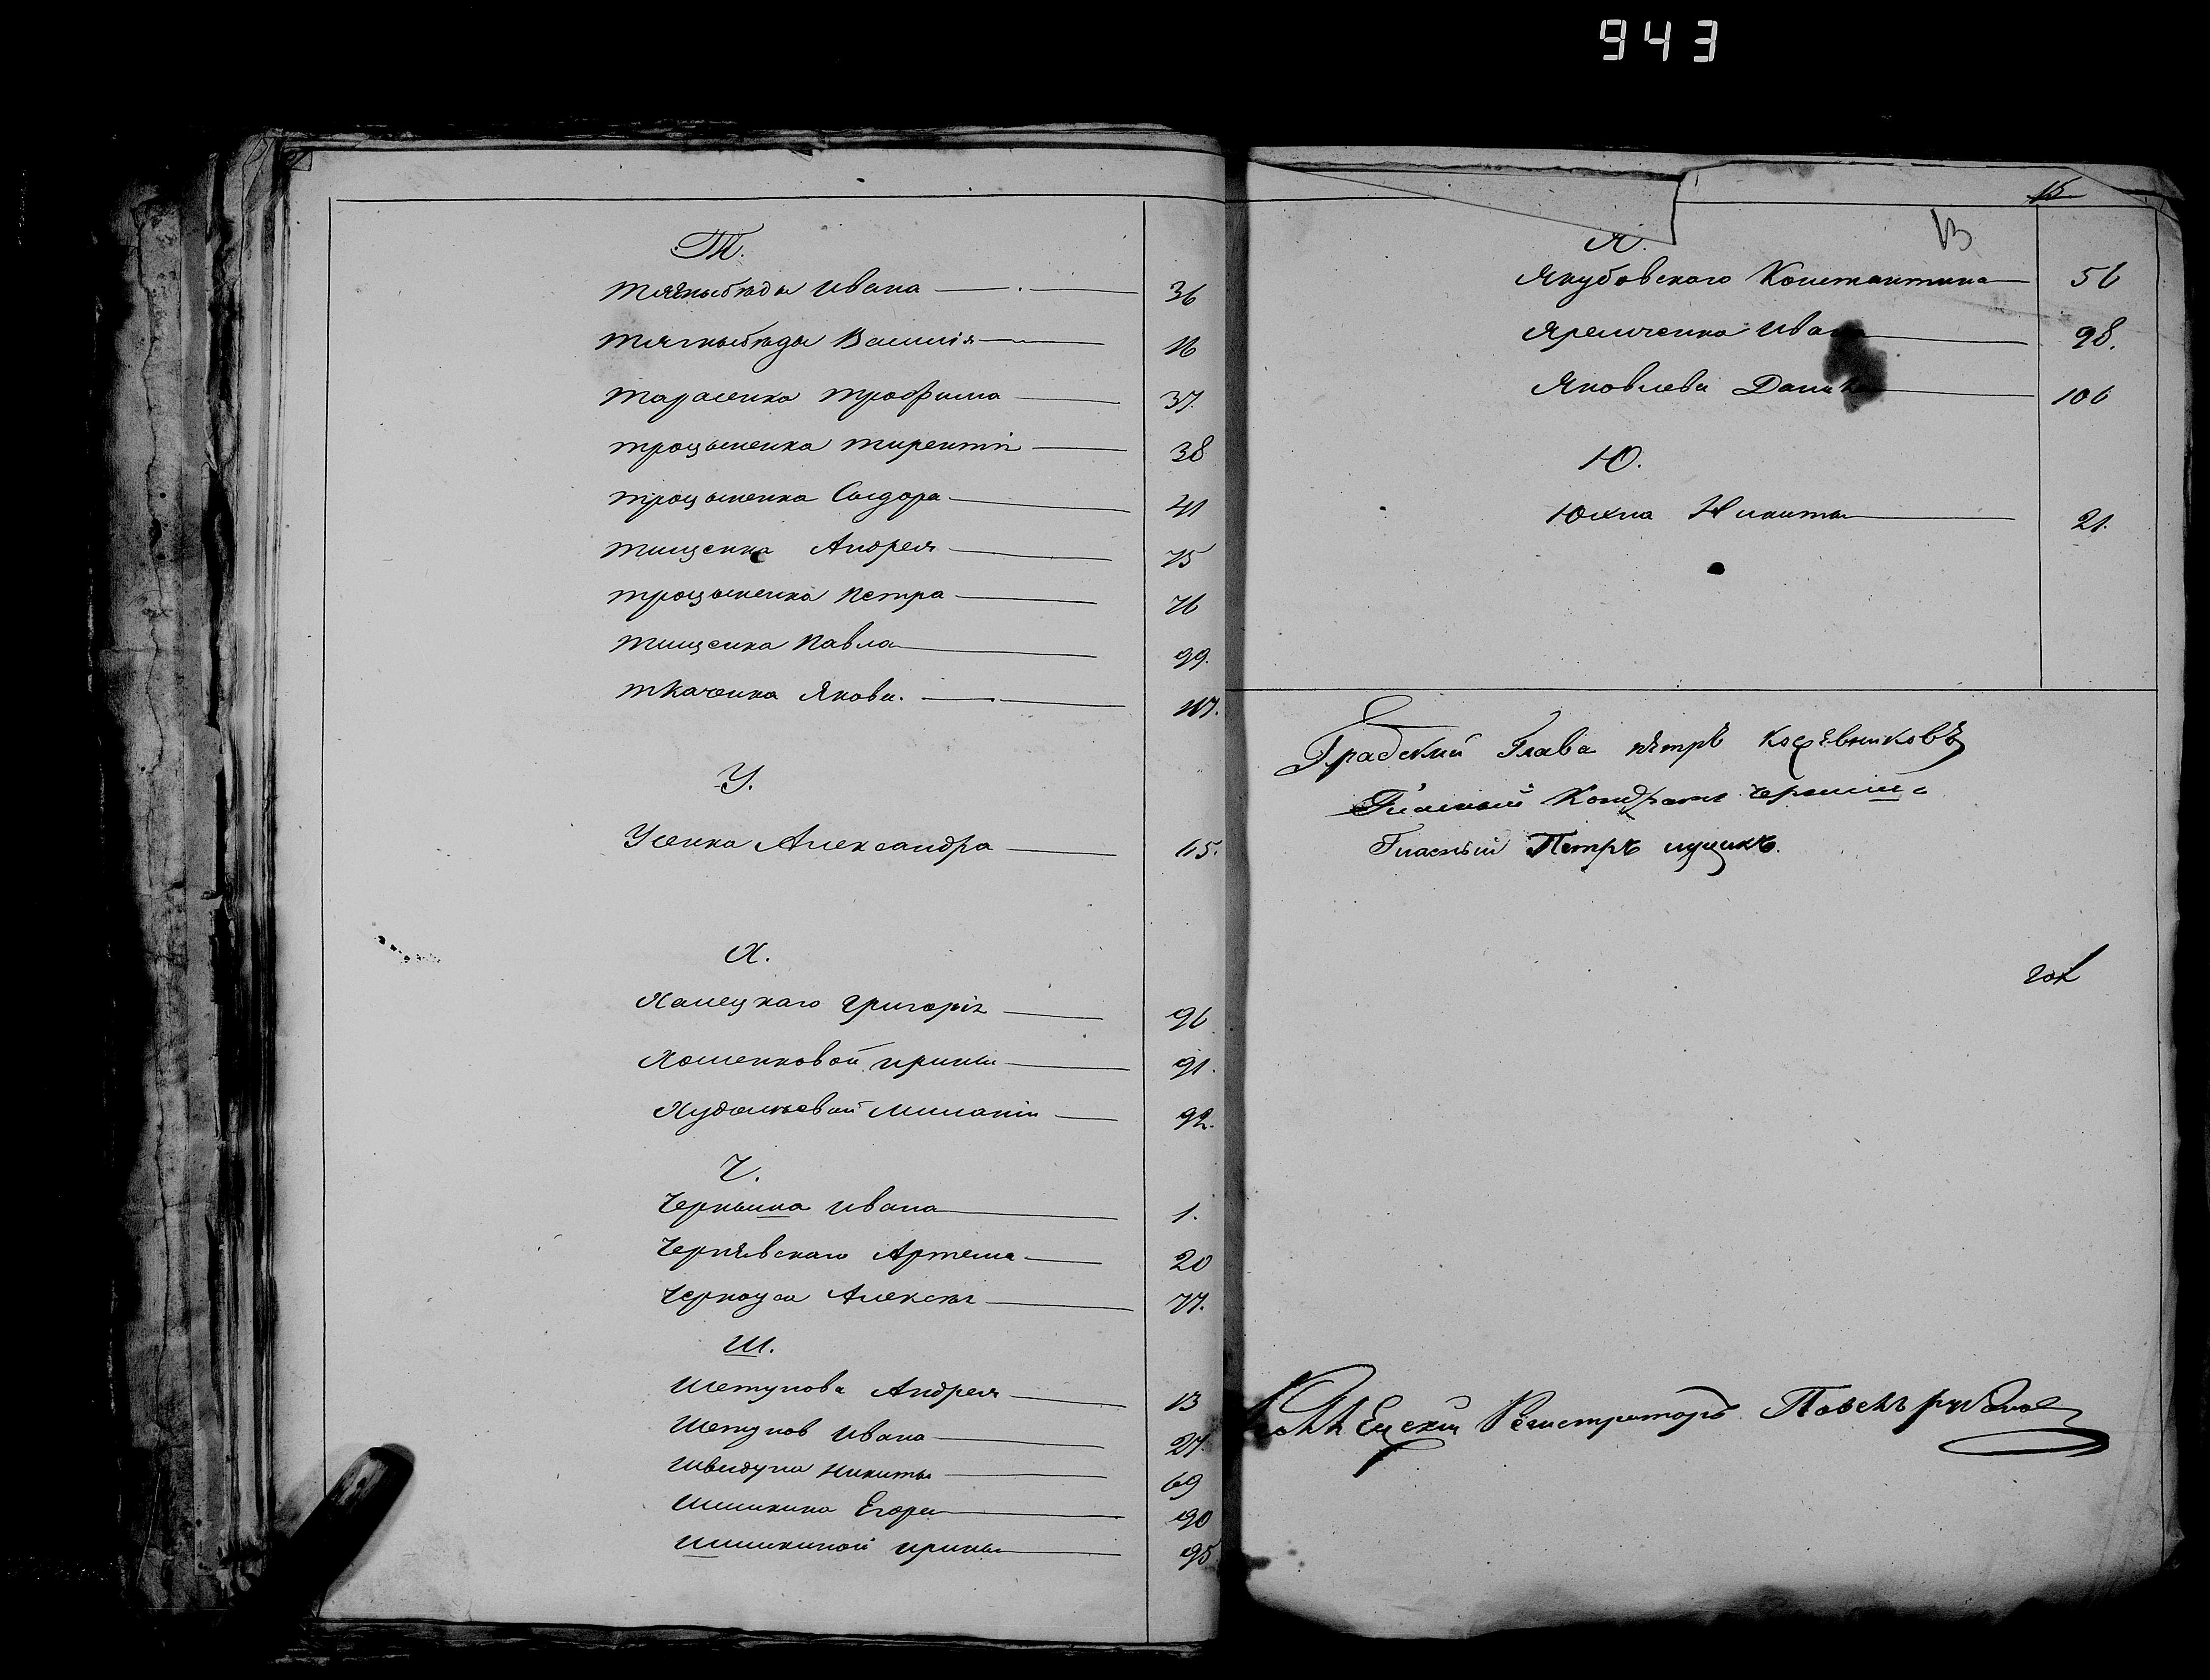 943
Т.
Тягныбѣды Ивана 36
Тягныбѣды Василія 16
Тарасенка Трофима 37.
Троцыменка Тирентія 38
Троцыменка Сидора 41
Тищенка Андрея 75
Троцыменка Петра 76
Тищенка Павла 99.
Ткаченка Якова. 107.
У.
Усенка Александра 65.
Х.
Ханецкаго Григорія 96
Хоменковой Ирины 91.
Худольевой Миланіи 92.
Ч.
Черныша Ивана 1.
Чернѣвскаго Артема 20
Черноуса Алексѣя 77.
Ш.
Шетунова Андрея 13
Шетунов Ивана 27.
Швидуна Никиты 69
Шишкина Егора 90
Шишкиной Ирины 95
15
13
Я.
Якубовскаго Константина 56
Яременка Ивана 98.
Яковлева 106
Ю.
Юхна Никиты 21.
Градский Глава пѣтръ кожѣвниковъ
Гласный Кондратъ
Гласный Петръ
Регистраторъ Павелъ